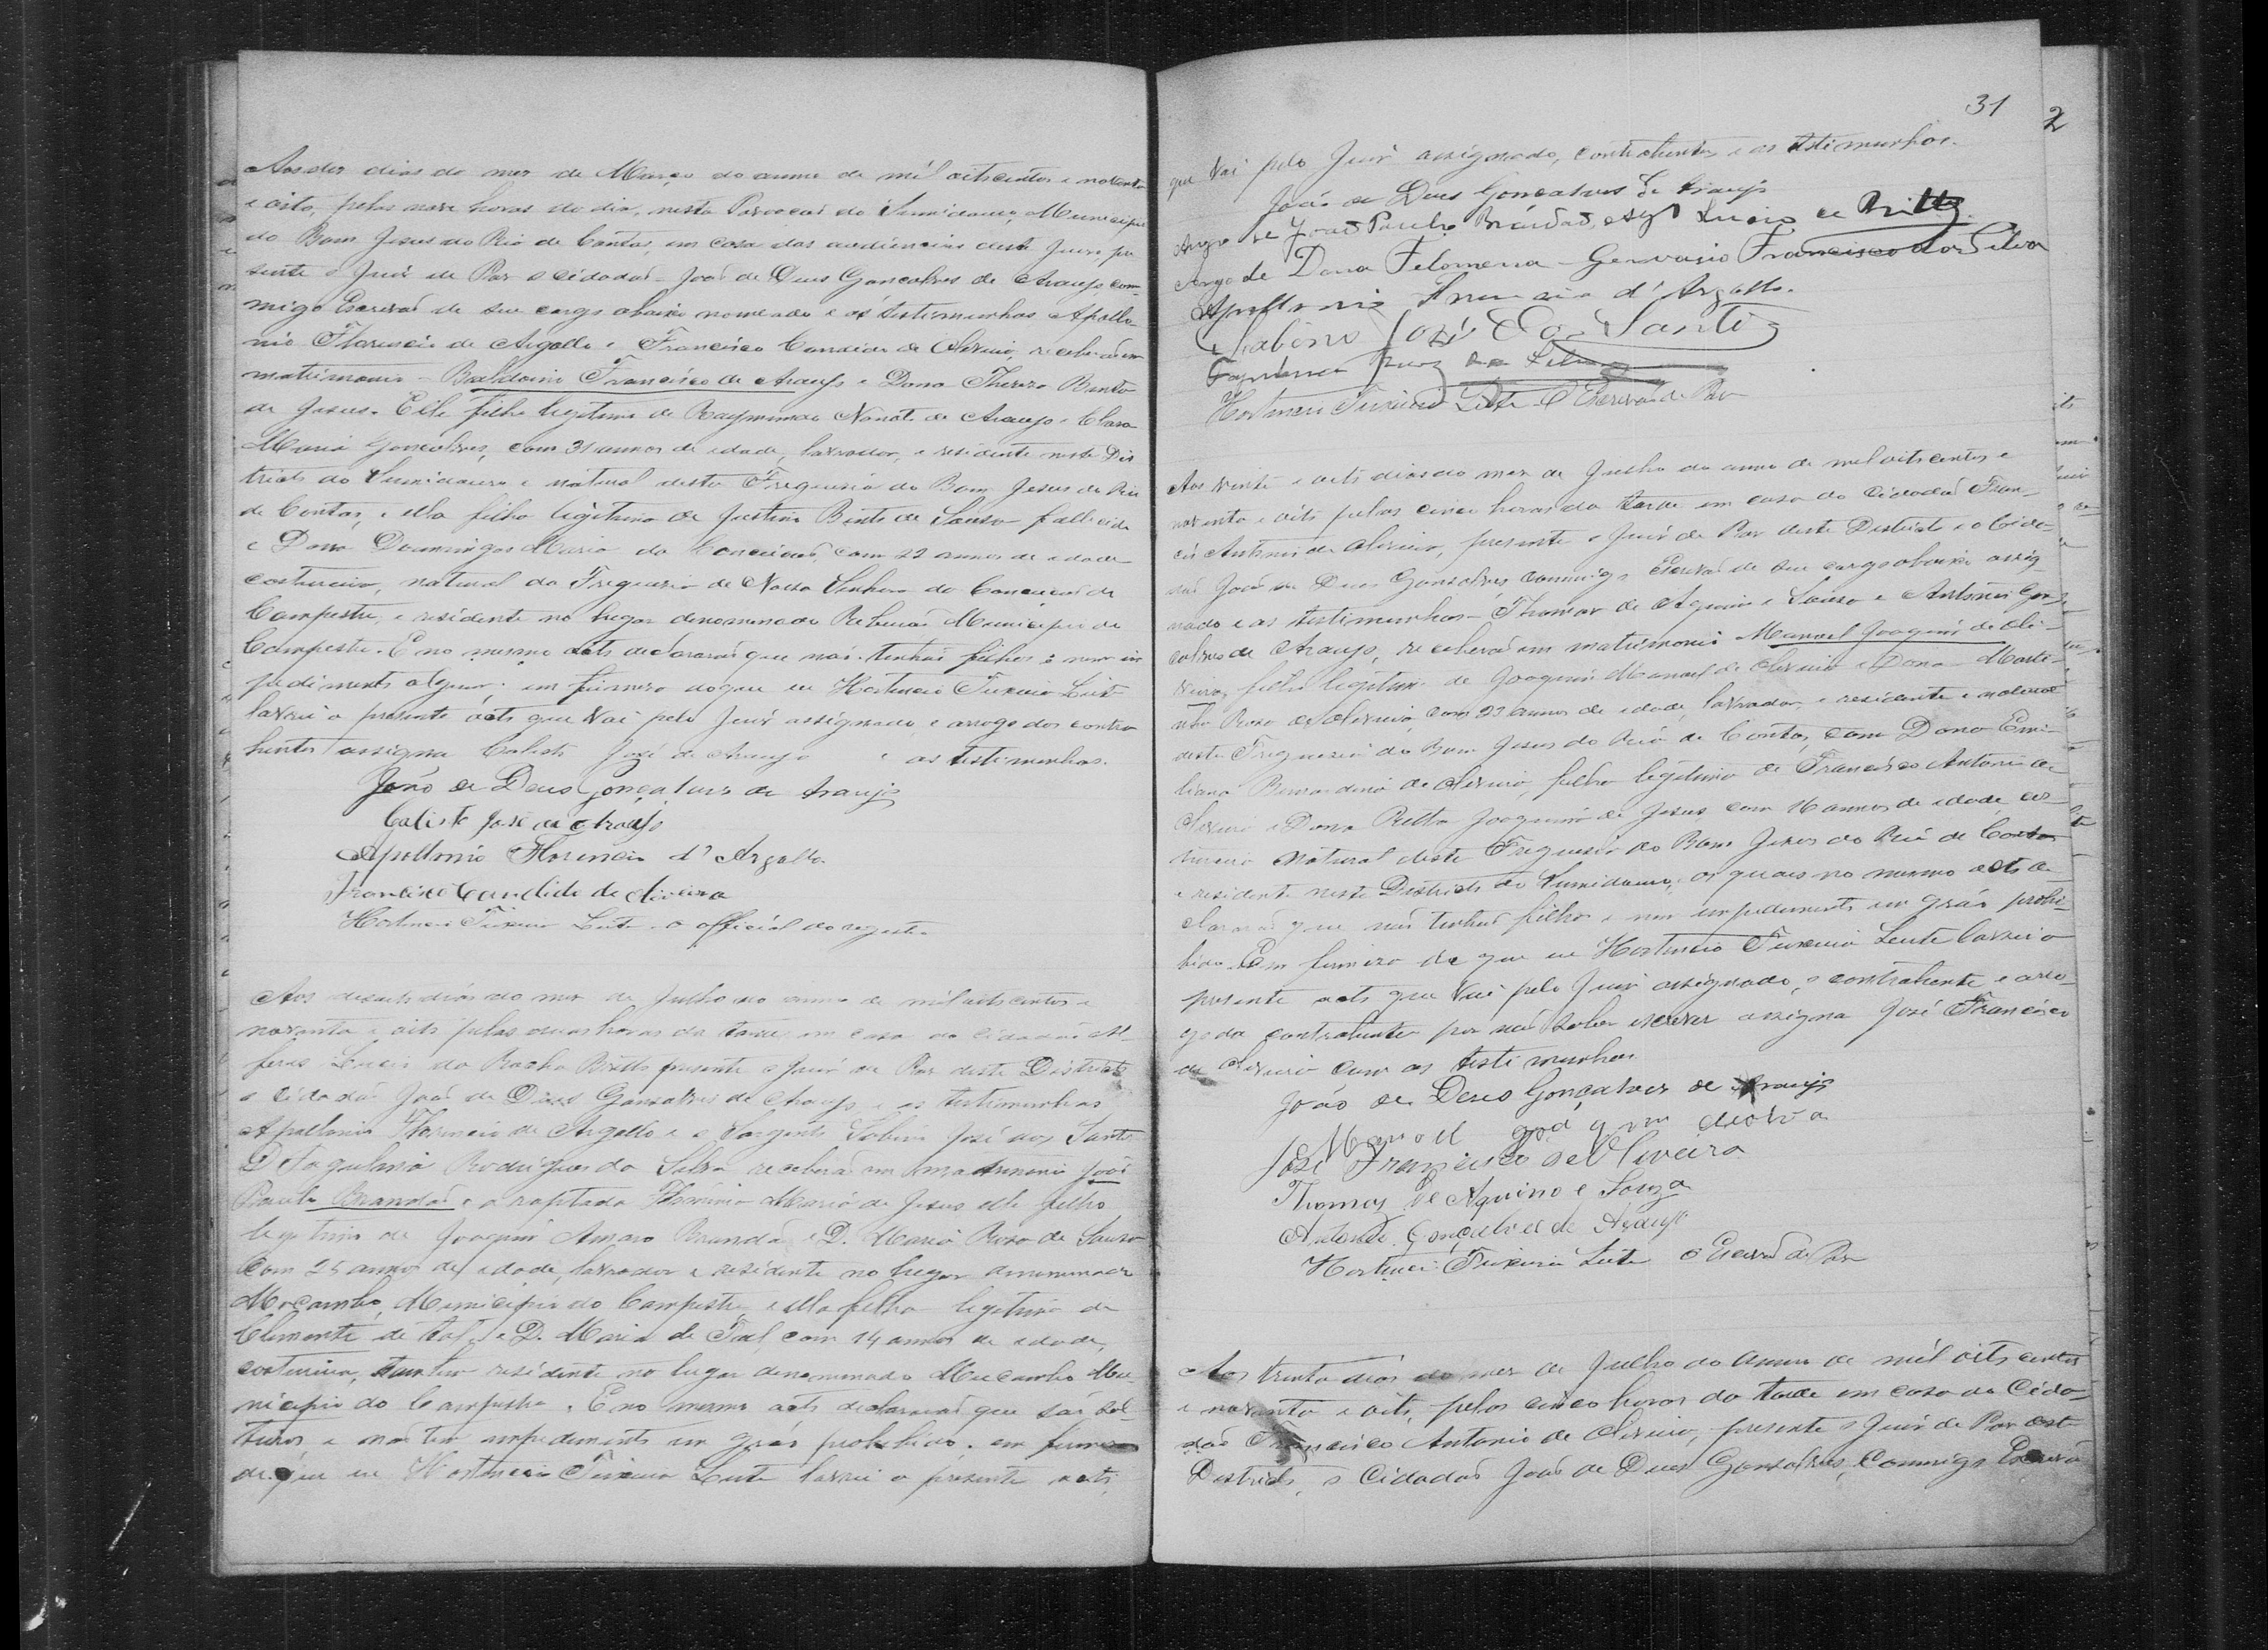 Aos dez dias do mez de Março do anno de mil oitocentos e noventa
e oito, pelas nove horas do dia, nesta Povoação do Sumidouro, Municipio
do Bom Jesus do Rio de Contas, em casa das audiencias deste Juizo pre
sente o Juiz de Paz o cidadão João de Deus Gonçalves de Araujo com
migo Escrivão de seu cargo abaixo nomeado e as testimunhas Apollo
nio Florencio de Argollo e Francisco Candido de Oliveira, receberão em
matrimonio Balduino Francisco de Araujo e Dona Thereza Bento
de Jesus. Elle filho legitimo de Raymundo Nonato de Araujo e Clara
Maria Gonçalves, com 31 annos de idade, lavrador, e residente neste Dis
tricto do Sumidouro e natural desta Freguesia do Bom Jesus do Rio
de Contas, e ella filha legitima de Justino Bento de Souza fallecido
e Dona Domingas Maria da Conceição, com 22 annos de idade
costureira, natural da Freguesia de Nossa Senhora da Conceição de
Campestre, e residente no lugar denominado Municipio de
Campestre. E no mesmo acto declararão que não tinhão filhos e nem im
pedimento algum; em firmeza do que eu Hortencio Teixeira Leite
lavrei o presente acto que vai pelo Juiz assignado, e arrogo dos contra
hentes assigna Calisto José de Araujo e as testimunhas.
João de Deus Gonçalves de Araujo
Calisto José de Araujo
Apollonio Florencio d'Argollo
Francisco Candido de Oliveira
Hortencio Teixeira Leite o official do registro
Aos dezoito dias do mez de Julho do anno de mil oitocentos e
noventa e oito pelas duas horas da tarde, em casa do cidadão Al-
feres Lucio da Rocha Britto presente o Juiz de Paz deste Districto
o Cidadão João de Deus Gonsalves de Araujo e as testimunhas
Apollonio Florencio de Argollo e o Sargento Sabino José dos Santos
D Rodrigues da Silva receberão em matrimonio João
Paulo Brandão e a raptada Maria de Jesus elle filho
legitimo de Joaquim Amaro Brandão e D. Maria Rosa de Souza
com 25 annos de idade, lavrador e residente no lugar denominado
Mocambo, Municipio do Campestre e ella filha legitima de
Clemente de tal, e D. Maria de Tal, com 14 annos de idade,
costureira, tambem residente no lugar denominado Mucambo Mu-
nicipio do Campestre. E no mesmo acto declararão que são sol-
teiros e não tem impedimento em gráo prohibido. em firmeza
do que eu Hortencio Teixeira Leite lavrei o presente acto,
31
2
que vai pelo Juiz assignado, contrahentes e as testimunhas.
João de Deus Gonçalves de Araujo
Arogo de João Paulo Brandão, Lucio de Britto
Arogo de Dona Felomena Gervasio Francisco da Silva
Apollonio Florencio d'Argollo.
Sabino José Dos Santos
da Silva
Hortencio Teixeira Leite O Escrivão de Paz
Aos vinte e oito dias do mez de Julho do anno de mil oitocentos e
noventa e oito pelas cinco horas da tarde em casa do Cidadão Fran-
cisco Antonio de Oliveira, presente o Juiz de Paz deste Districto o Cida-
dão João de Deus Gonsalves, commigo Escrivão de seu cargo abaixo assig
nado e as testimunhas Thomaz de Aquino e Souza e Antonio Gon-
calves de Araujo, receberão em matrimonio Manoel Joaquim de Oli-
veira, filho legitimo de Joaquim Manoel de Oliveira e Dona Marti-
nha Rosa de Oliveira, com 23 annos de idade, lavrador, e residente e natural
desta Freguesia do Bom Jesus do Rio de Contas, com Dona Emi-
liana Bernardina de Oliveira, filha legitima de Francisco Antonio de
Oliveira e Dona Ritta Joaquina de Jesus, com 16 annos de idade, cos-
tureira natural desta Freguesia do Bom Jesus do Rio de Contas
e residente neste Districto do Sumidouro, os quaes no mesmo acto de-
clararão que não tinhão filhos e nem impedimento em gráo prohi-
bido. Em firmeza do que eu Hortencio Teixeira Leite lavrei o
presente acto que vai pelo Juiz assignado, o contrahente e arro-
go da contrahente por não saber escrever assigna José Francisco
de Oliveira com as testimunhas
João de Deus Gonçalves de Araujo
Manoel
José Francisco de Oliveira
Thomaz de Aquino e Souza
Antonio Gonçalves de Araujo
Hortencio Teixeira Leite O Escrivão de Paz
Aos trinta dias do mez de Julho do anno de mil oitocentos
e noventa e oito, pelas cinco horas da tarde em casa do Cida
dão Francisco Antonio de Oliveira, presente o Juiz de Paz deste
Districto, o Cidadão João de Deus Gonsalves, Commigo Escrivão